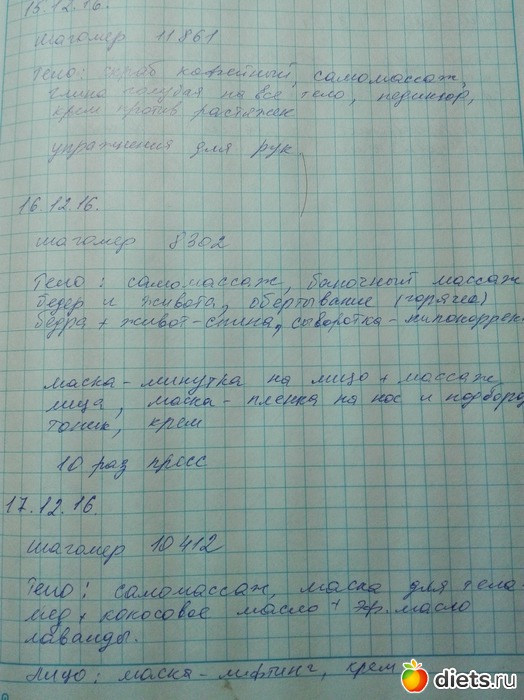 15.12.16.
шагомер 11861
Тело: скраб кофейный, самомассаж,
глина голубая на все тело, педикюр,
крем против растяжек
упражнения для рук
16.12.16.
шагомер 8302
Тело: самомассаж, баночный массаж
бедер и живота, обертывание (горячее)
бедра + живот-спина, сыворотка-липокоррек
маска-минутка на лицо + массаж
лица, маска-пленка на нос и подбород
тоник, крем
10 раз пресс
17.12.16.
шагомер 10412
Тело: самомассаж, маска для тела-
мед + кокосовое масло + эф. масло
лаванды.
Лицо: маска-лифтинг, крем
diets.ru